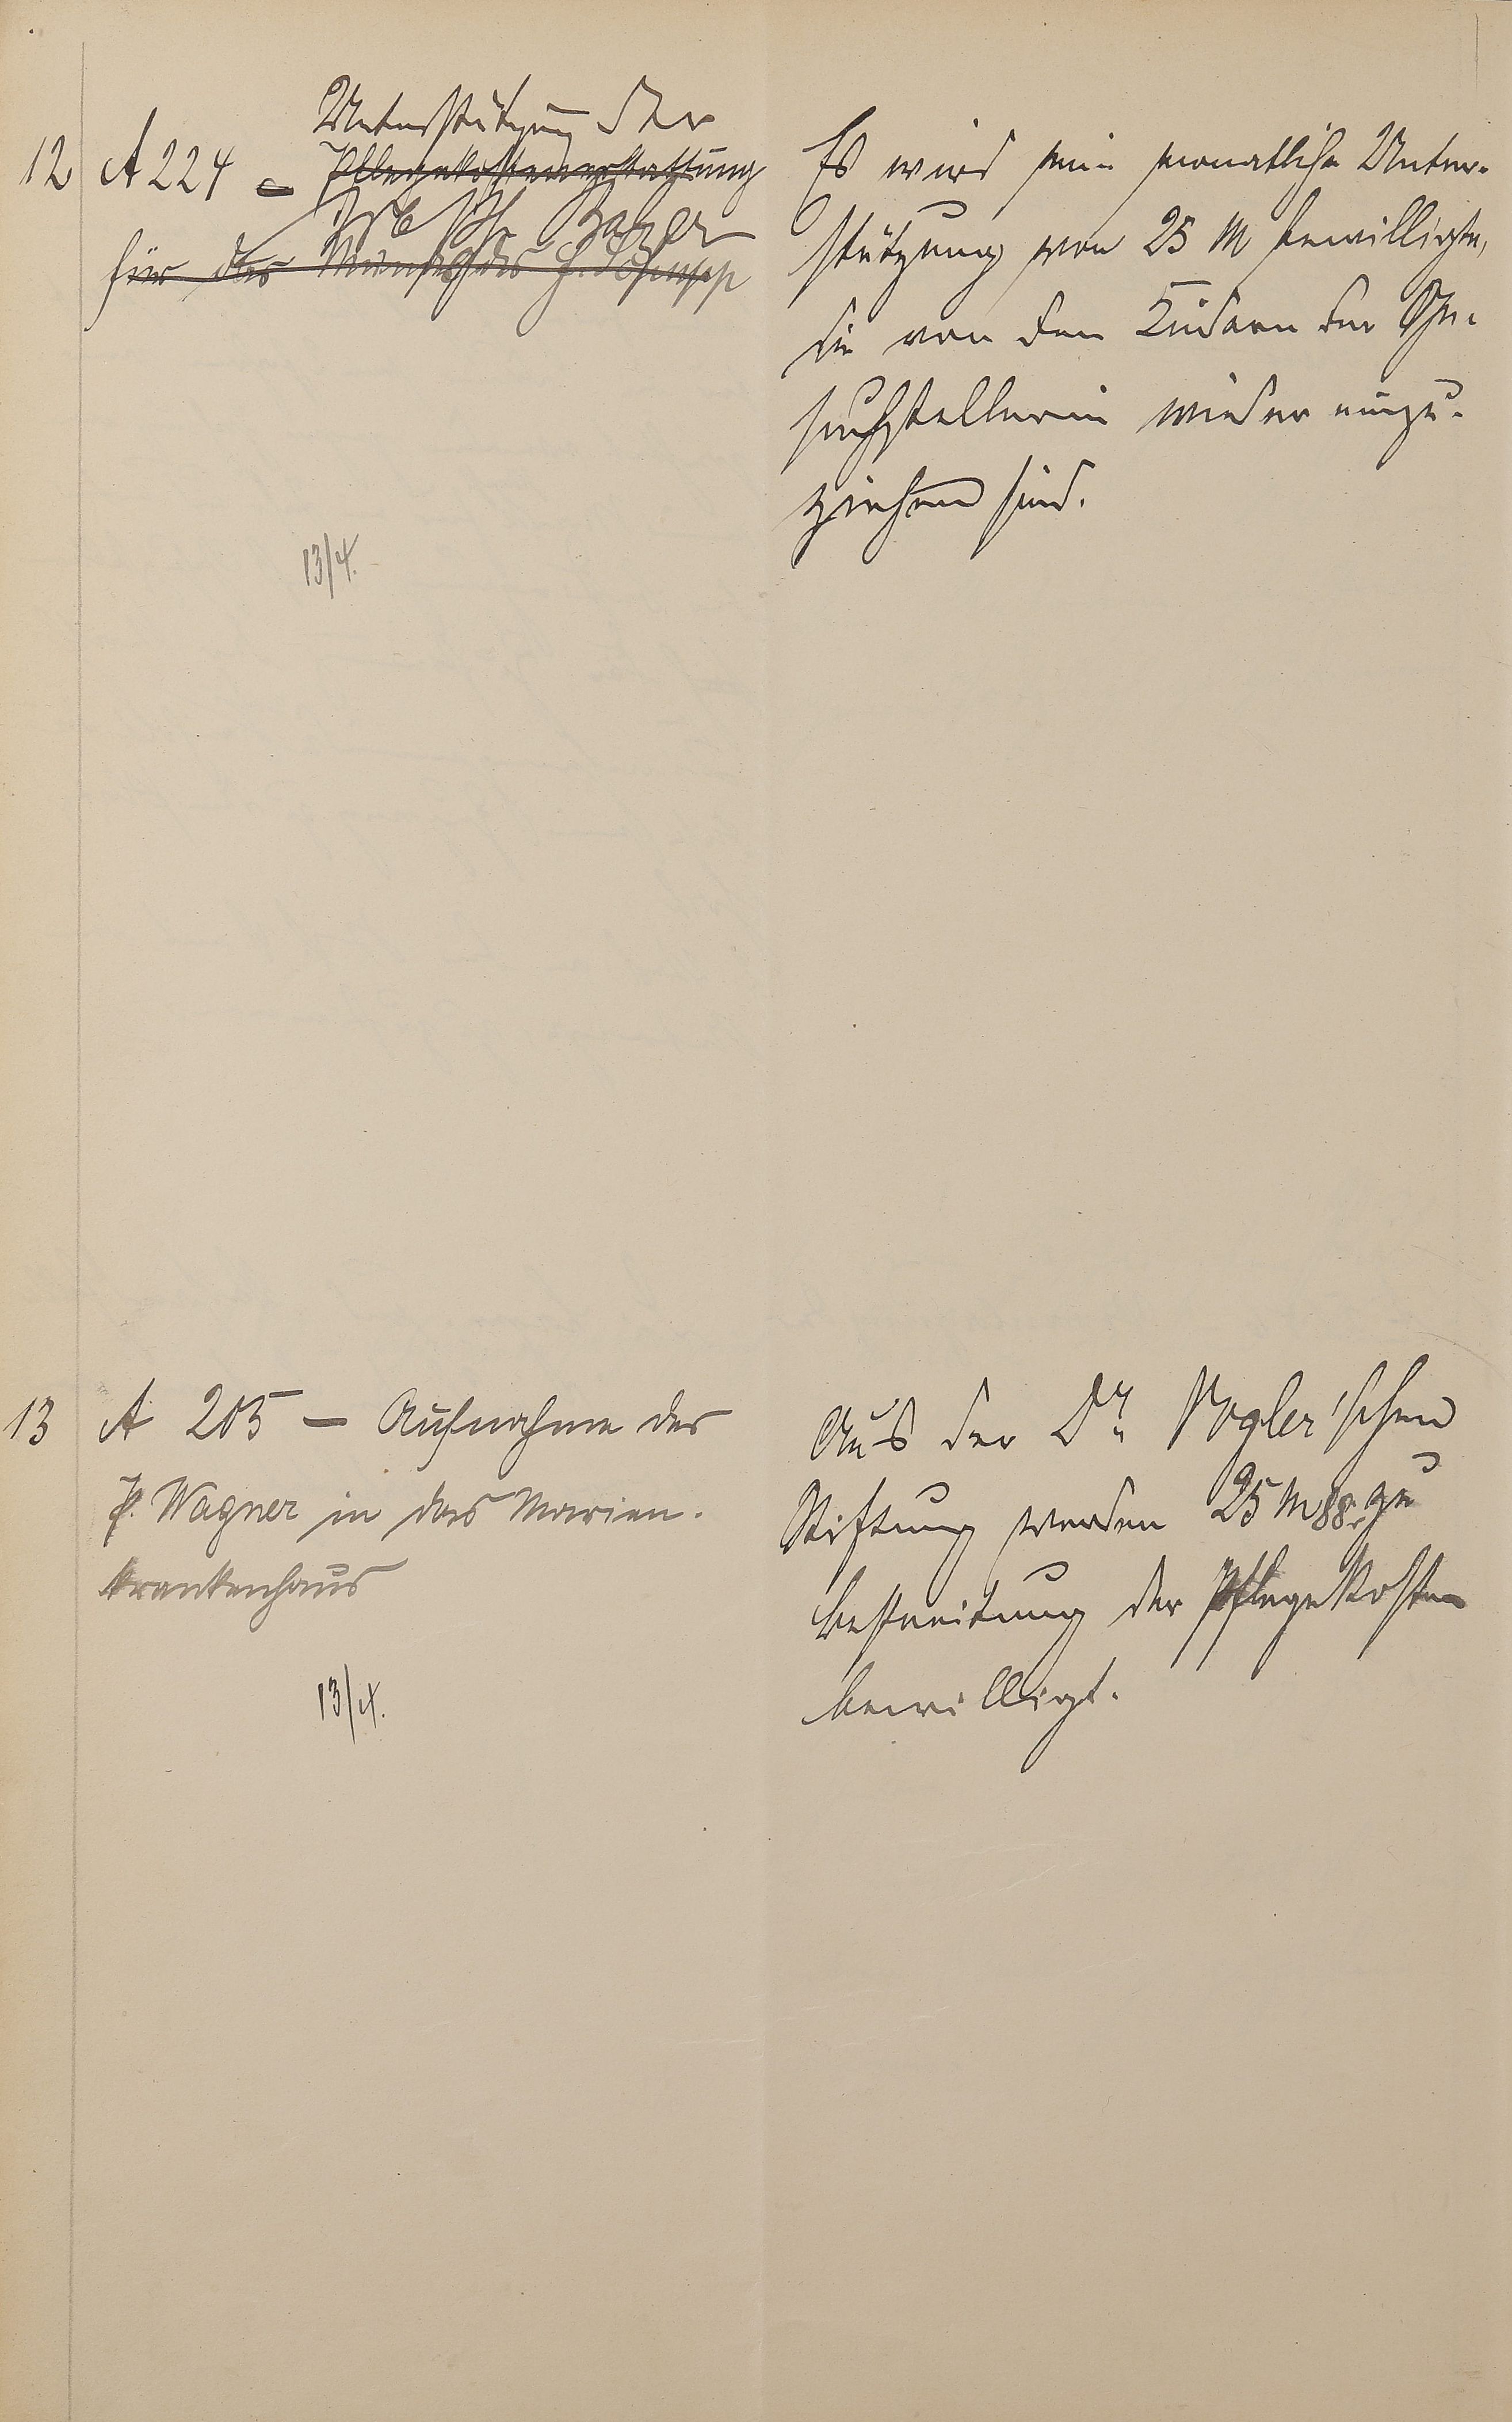 12 A 224 - Unterstützung der
Pflegekostenerstattung
für das
13/4.
Es wird eine monatliche Unter-
stützung von 25 M bewilligt,
die von den Kindern der Ge-
suchstellerin wieder einzu-
ziehen sind.
13 A 205 — Aufnahme des
P. Wagner in das Marien-
krankenhaus
13/4.
Aus der Dr. Vogler'schen
Stiftung werden 25 M 88 zu
Bestreitung der Pflegekosten
bewilligt.